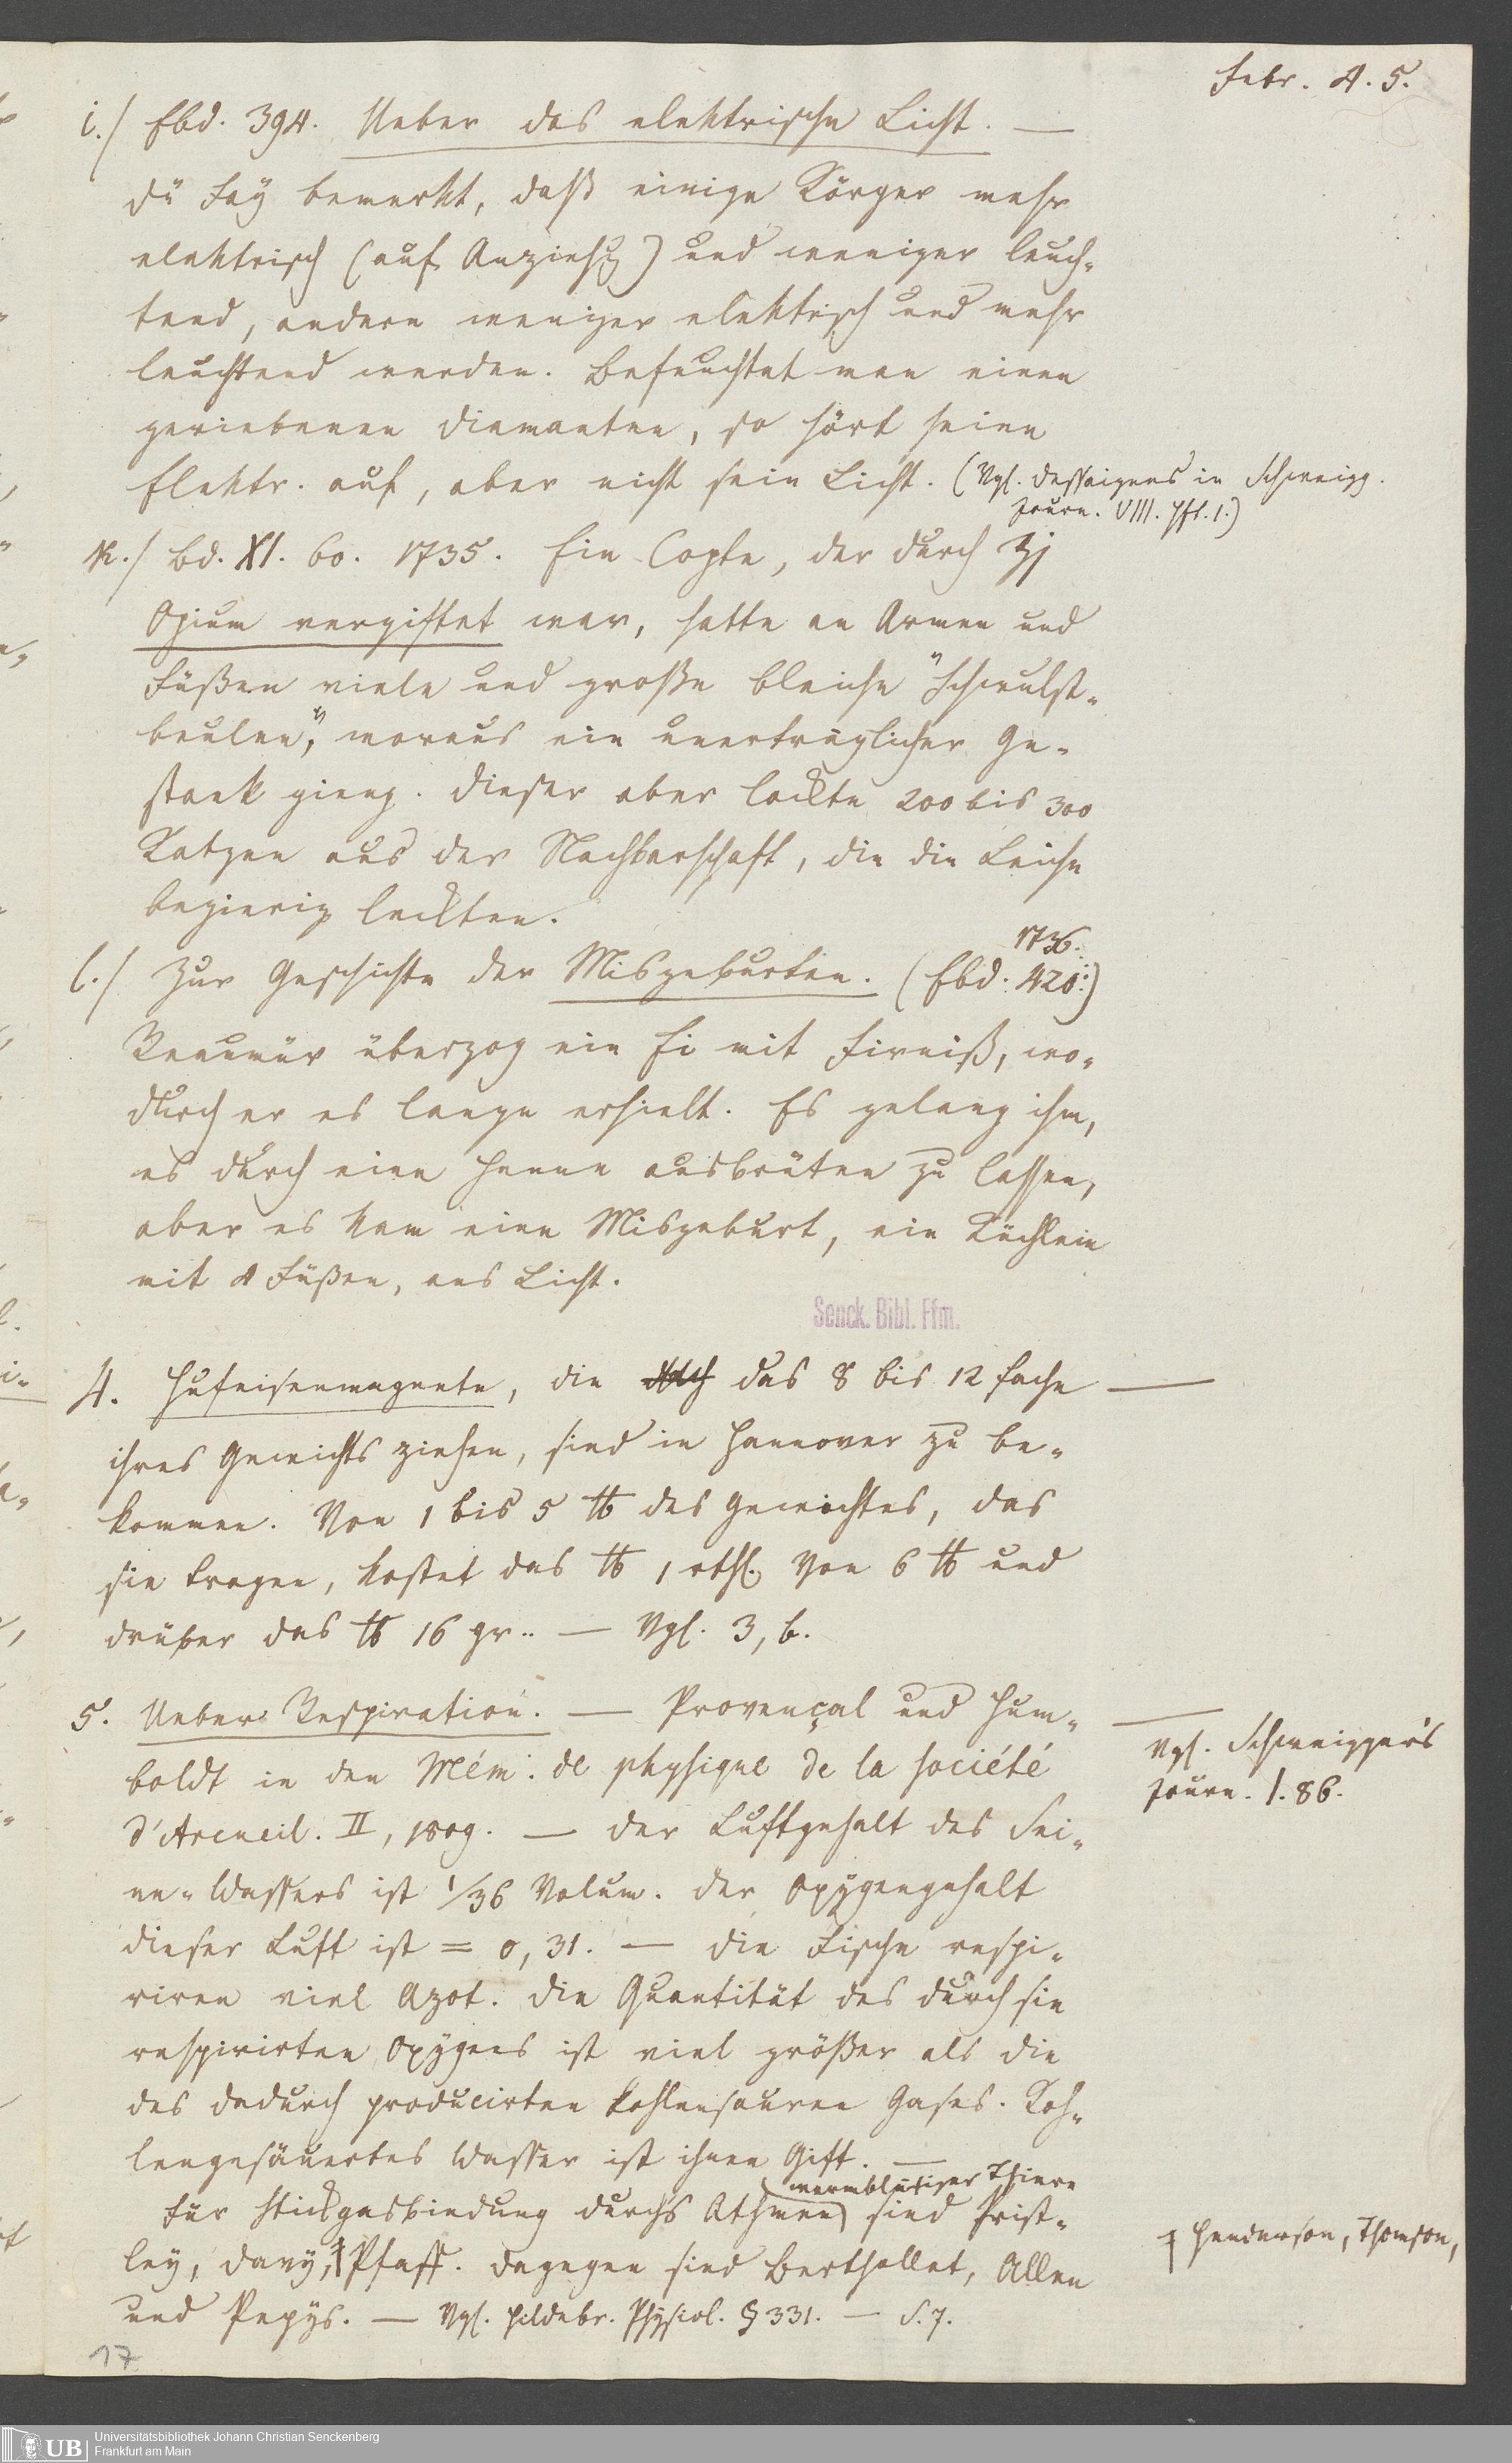 Febr. 4. 5.
i./ Ebd. 394. Ueber das elektrische Licht. —
Dü Fay bemerkt, daß einige Körper mehr
elektrisch (auf Anziehg) und weniger leuch-
tend, andere weniger elektrisch und mehr
leuchtend werden. Befeuchtet man einen
geriebenen Diamanten, so hört seine
Elektr. auf, aber nicht sein Licht. (Vgl. Dessaignes in Schweigg.
Journ. VIII. Hft. 1.)
k./ Bd. XI. 60. 1735. Ein Copte, der durch ʒj
Opium vergiftet war, hatte an Armen und
Füßen viele und große bleiche "Schwulst-
beulen", woraus ein unerträglicher Ge-
stank gieng. Dieser aber lockte 200 bis 300
Katzen aus der Nachbarschaft, die die Leiche
begierig leckten.
1736.
l./ Zur Geschichte der Misgeburten. (Ebd. 420.)
Reaumür überzog ein Ei mit Firniß, wo-
durch er es lange erhielt. Es gelang ihm,
es durch eine Henne ausbrüten zu lassen,
aber es kam eine Misgeburt, ein Küchlein
mit 4 Füßen, ans Licht.
Senck. Bibl. Ffm.
4. Hufeisenmagnete, die das 8 bis 12 fache —
ihres Gewichts ziehen, sind in Hannover zu be-
kommen. Von 1 bis 5 ℔ des Gewichtes, das
sie tragen, kostet das ℔ 1 rthl. Von 6 ℔ und
drüber das ℔ 16 gr. — Vgl. 3, b.
5. Ueber Respiration. — Provençal und Hum-
boldt in den Mém. de physique de la société
d'Arcueil. II, 1809. — Der Luftgehalt des Sei-
ne-Wassers ist 1/36 Volum. Der Oxygengehalt
dieser Luft ist = 0,31. — Die Fische respi-
riren viel Azot. Die Quantität des durch sie
respirirten Oxygens ist viel größer als die
des dadurch producirten kohlensauren Gases. Koh-
lengesäuertes Wasser ist ihnen Gift. —
warmblütiger Thiere
Für Stickgasbindung durchs Athmen sind Prist-
ley, Davy, Pfaff. Dagegen sind Berthollet, Allen
und Pepys. — Vgl. Hildebr. Physiol. § 331. — S. 7.
Vgl. Schweigger's
Journ. I. 86.
Henderson, Thomson,
17
UB Universitätsbibliothek Johann Christian Senckenberg
Frankfurt am Main